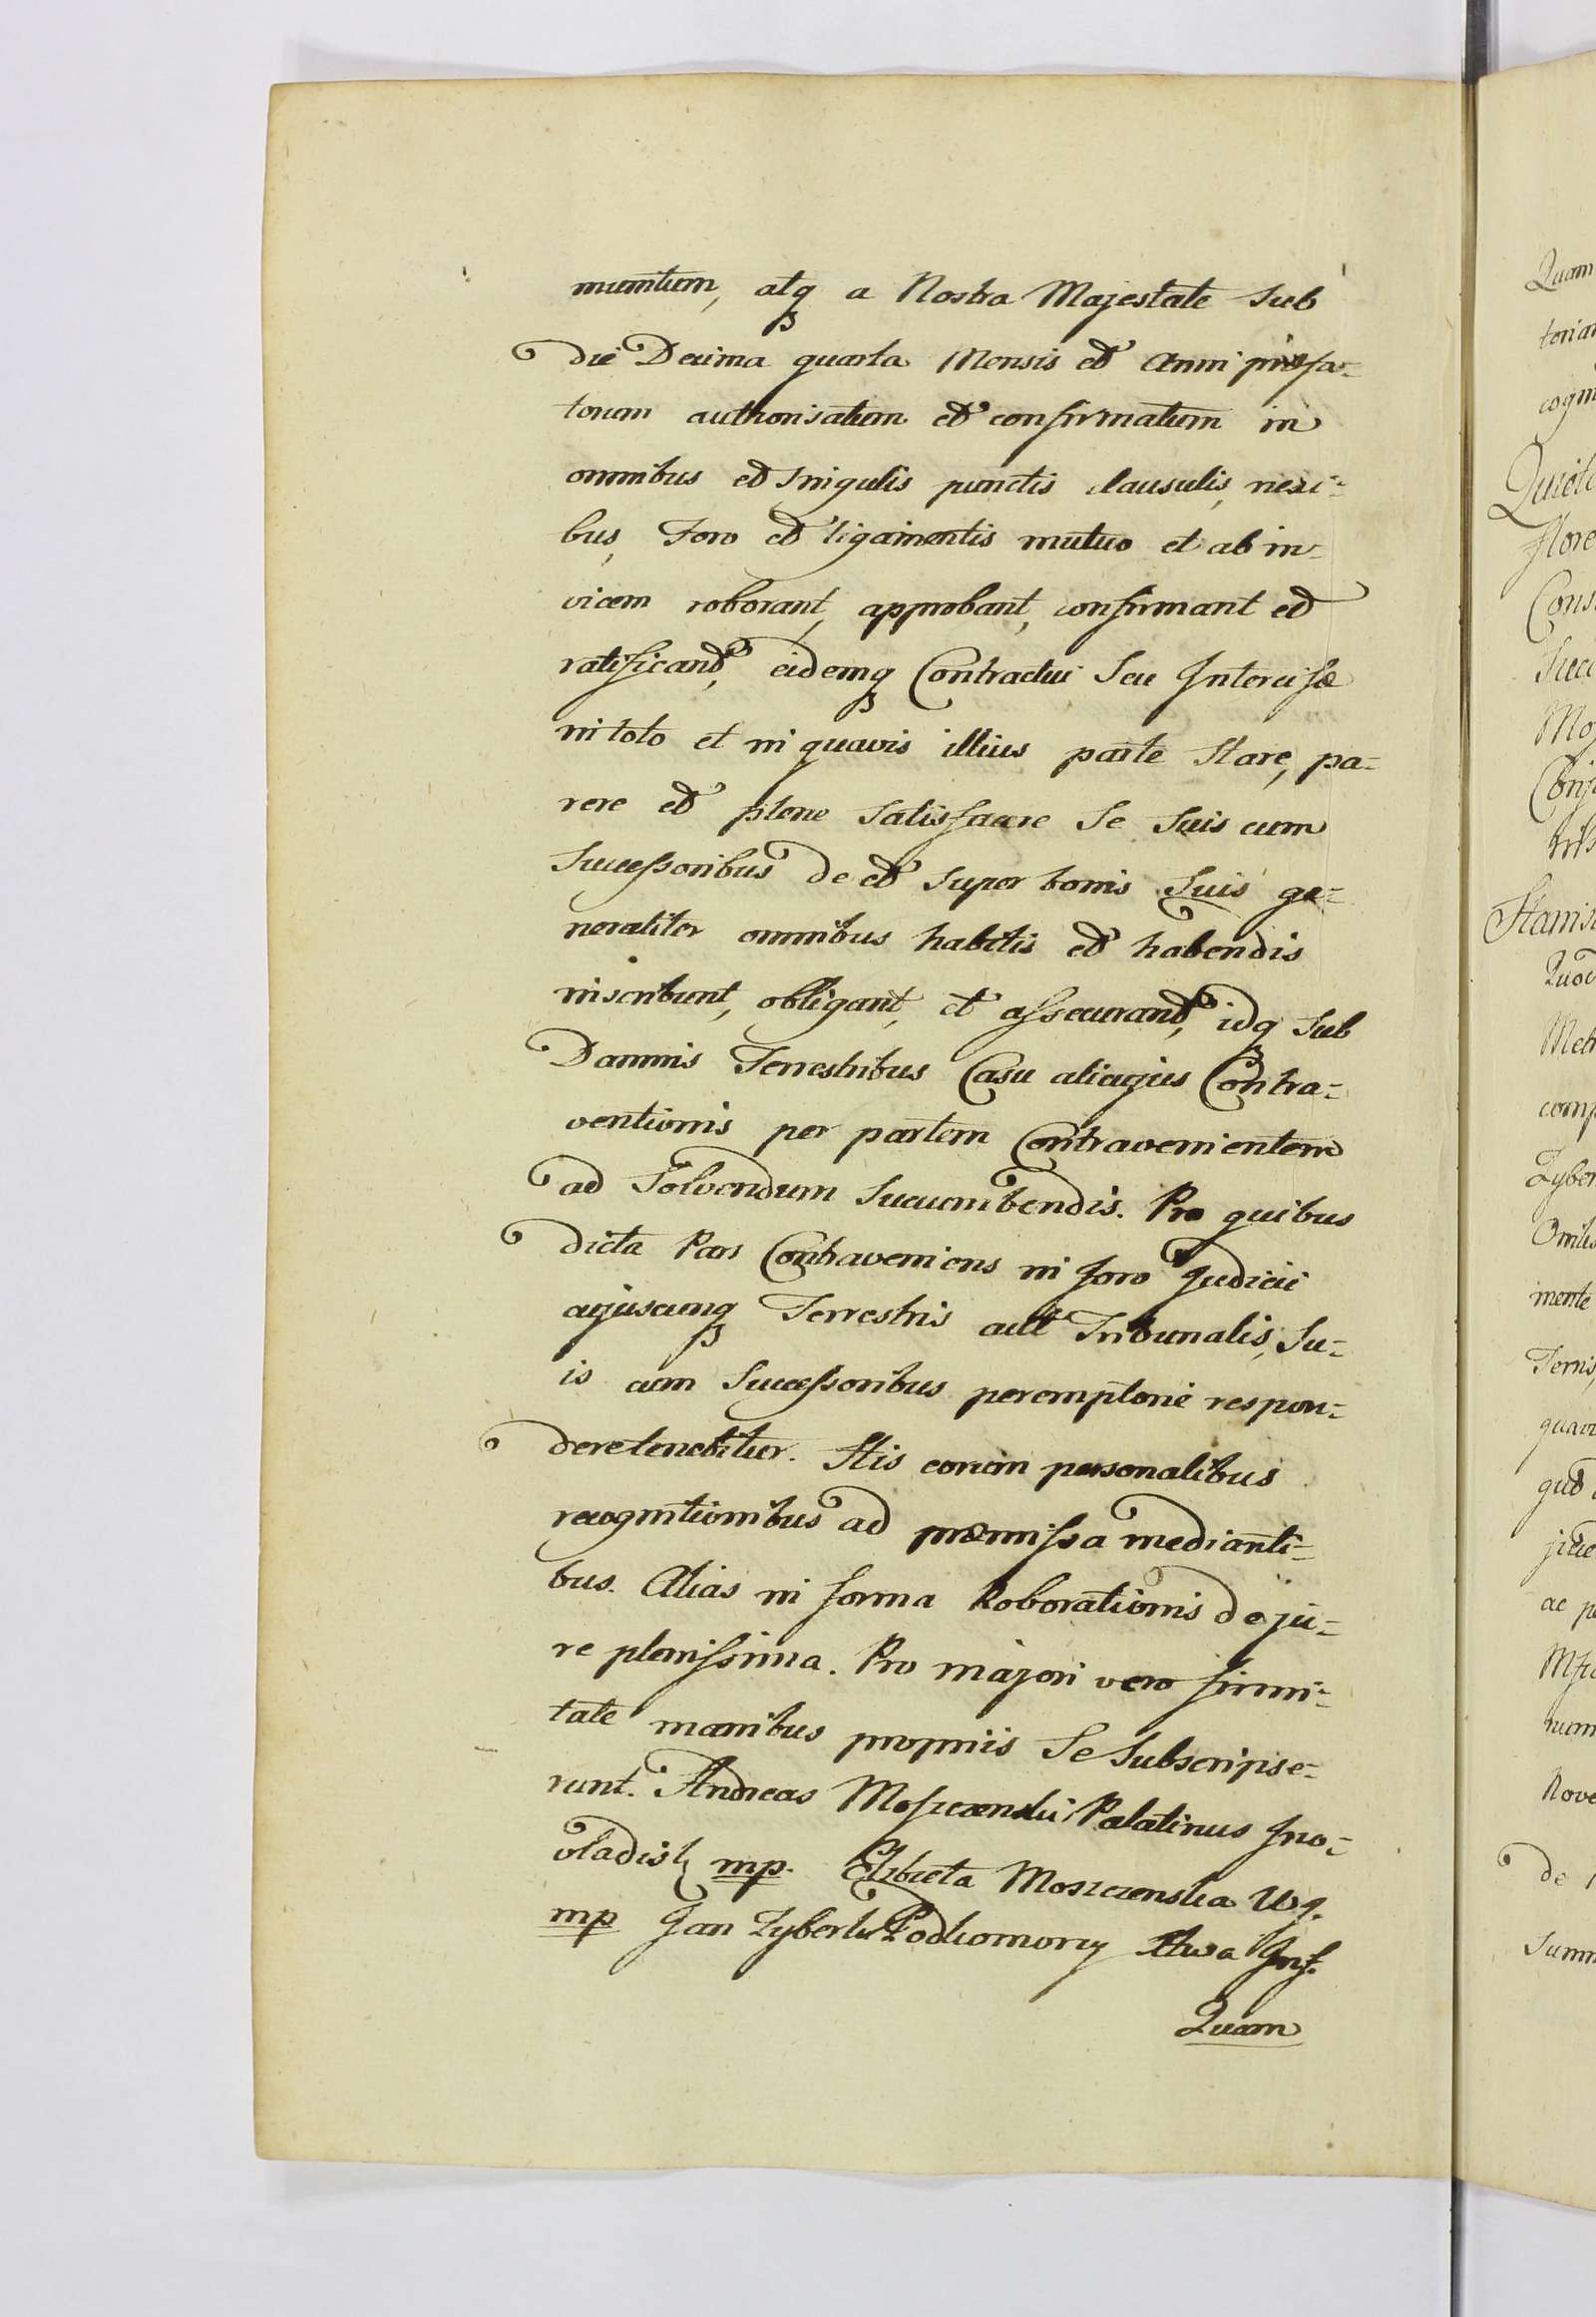 munitum, atq₃ a Nostra Majestate Sub
die Decima quarta Mensis et Anni præfa-
torum authorisatum et confirmatum in
omnibus et Singulis punctis clausulis, nexi-
bus, Foro et ligamentis mutuo et ab in-
vicem roborant, approbant, confirmant et
ratificant, eidemq₃ Contractui Seu Intercisæ
in toto et in quavis illius parte Stare, pa-
rere et plene Satisfacere Se Suis cum
Successoribus de et Super bonis Suis ge-
neraliter omnibus habitis et habendis
inscribunt, obligant, et assecurant, idq₃ Sub
Damnis Terrestribus Casu alicujus Contra-
ventionis per partem Contravenientem
ad Solvendum Sucumbendis. Pro quibus
dicta Pars Contraveniens in foro Judicii
cujuscunq₃ Terrestris aut Tribunalis, Su-
is cum Successoribus peremptorie respon-
dere tenebitur. His eorum personalibus
recognitionibus ad præmissa medianti-
bus. Alias in forma Roborationis de ju-
re plenissima. Pro majori vero firmi-
tate manibus propriis Se Subscripse-
runt. Andreas Moszczenski Palatinus Ino-
vladisł mp. Elzbieta Moszczenska W J.
mp Jan Zyberk Podkomorzy Xtwa Inf.
Quam
Quam
cogni
Flore
Cons
Succ
Stanis
Quod
Metr
comp
Zyber
mente
ac p
Nove
de
Summ